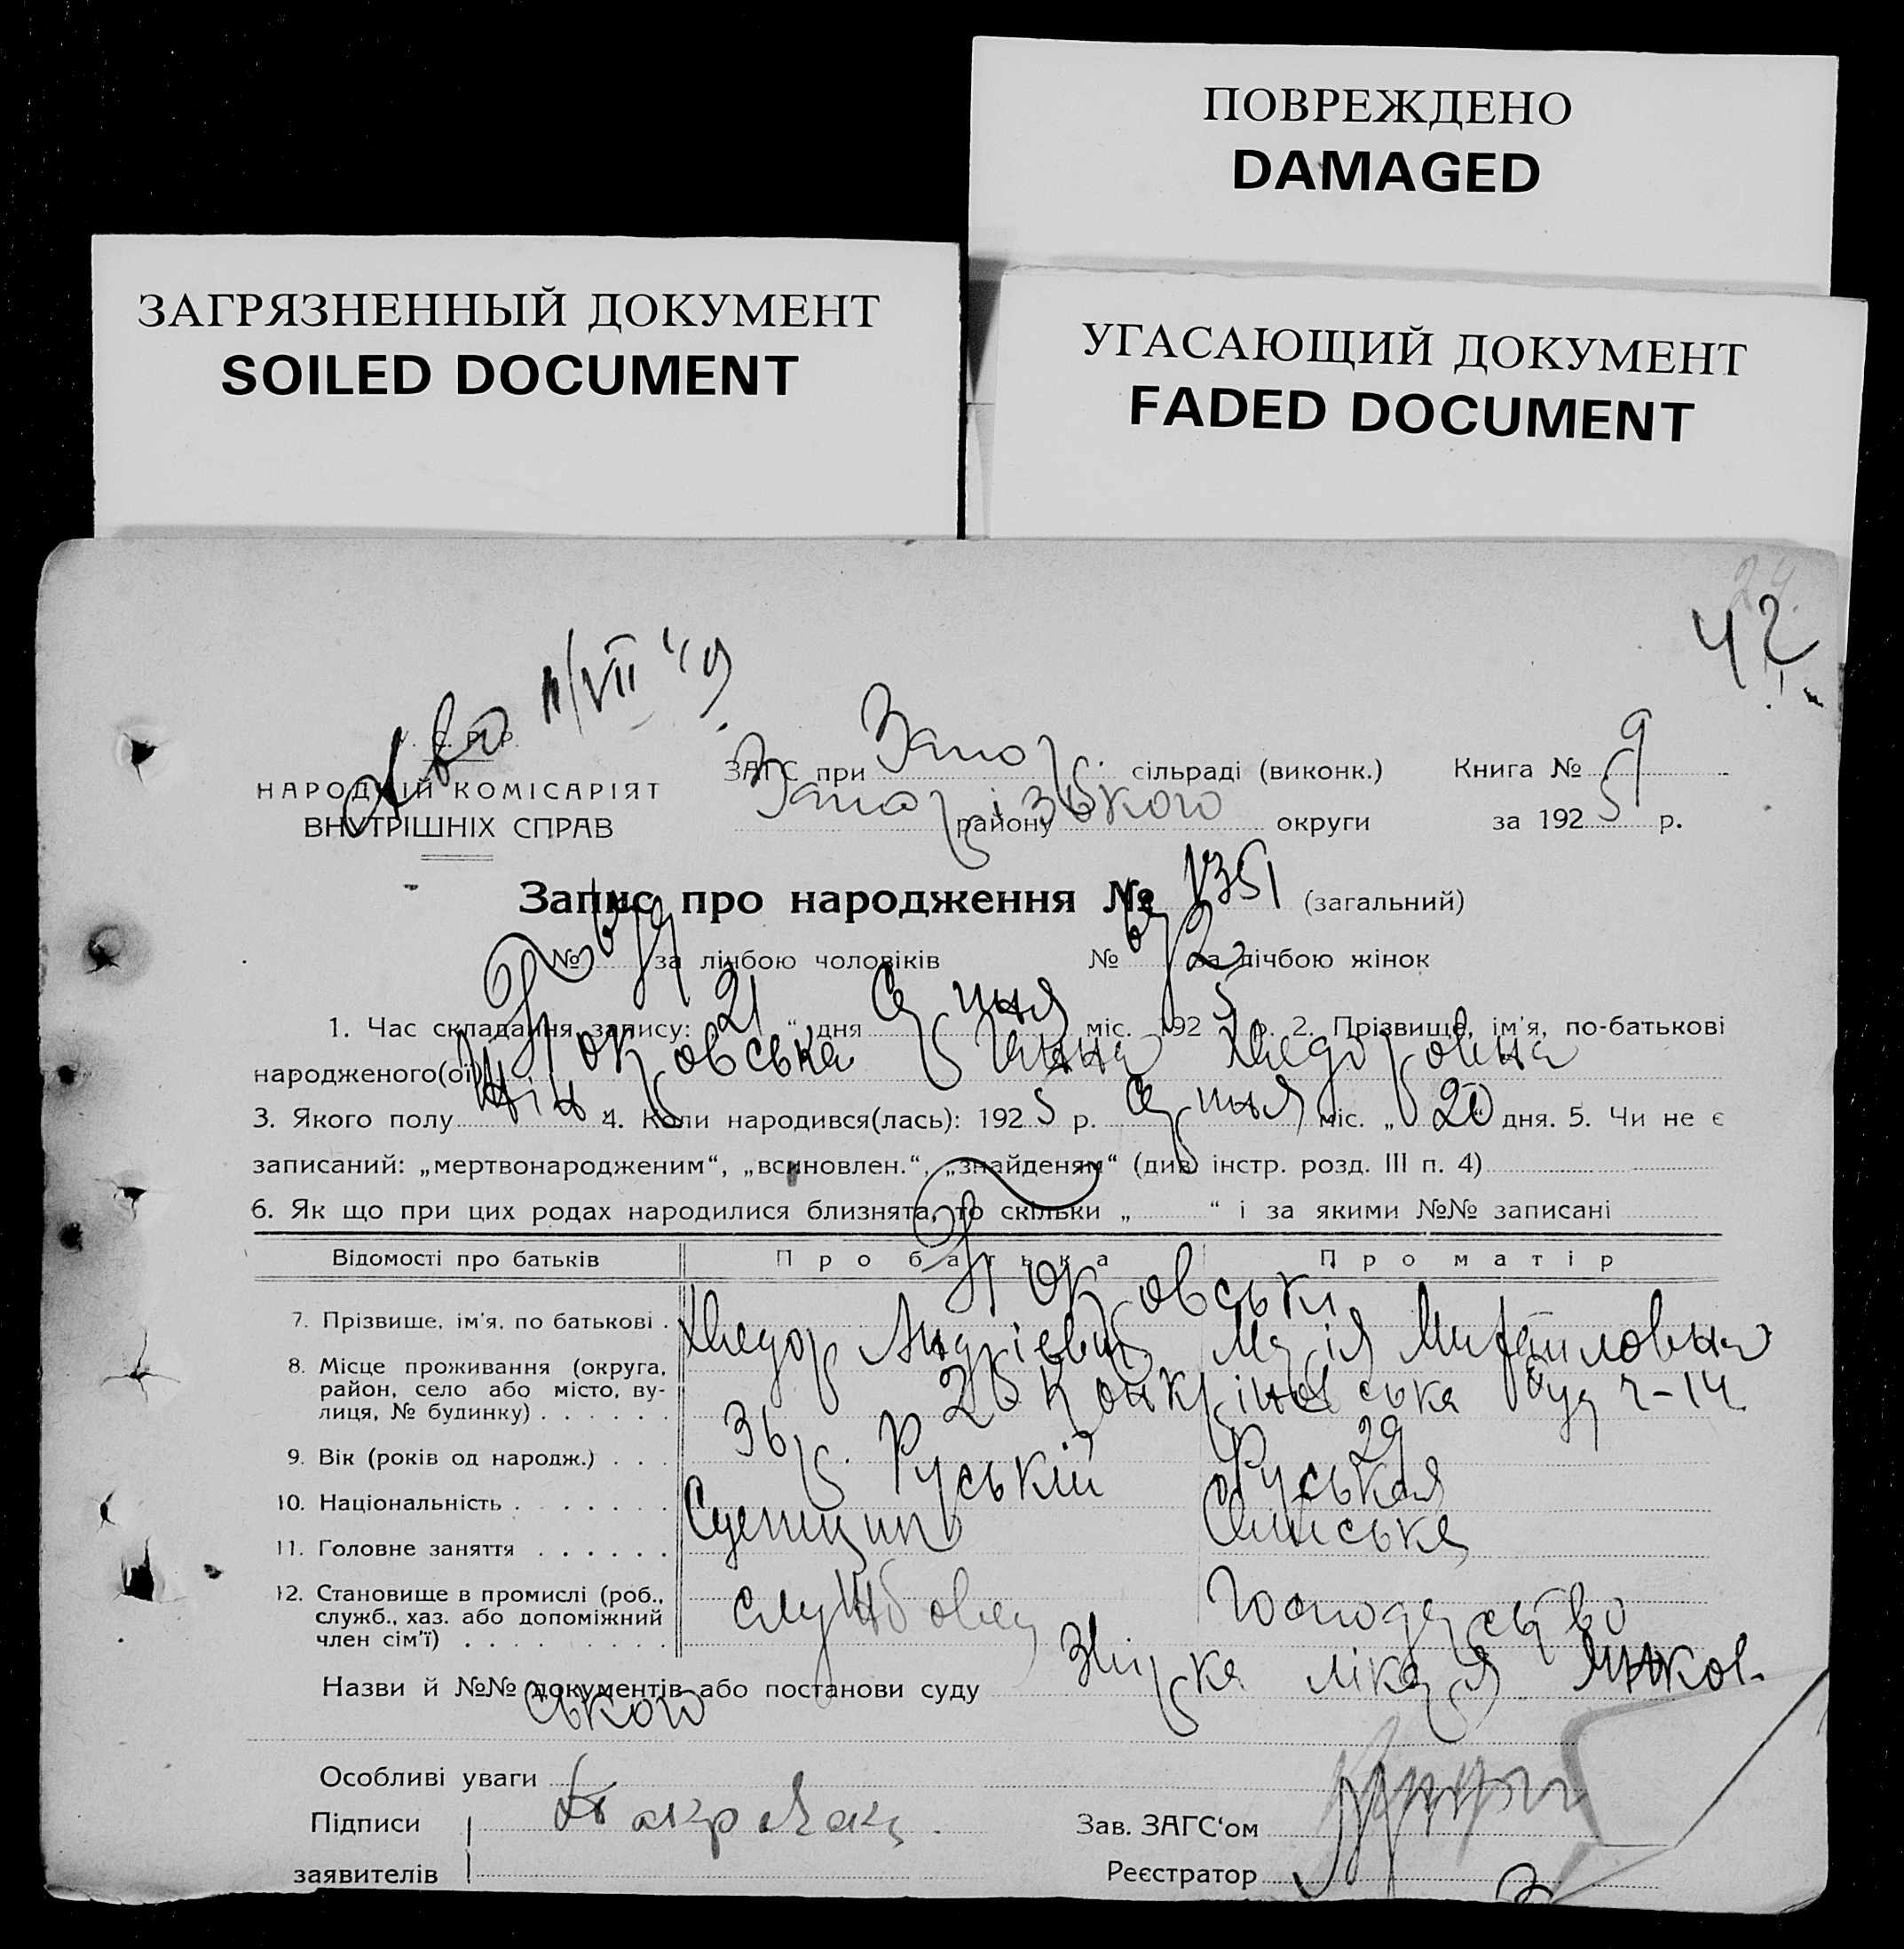 ПОВРЕЖДЕНО
DAMAGED
ЗАГРЯЗНЕННЫЙ ДОКУМЕНТ
SOILED DOCUMENT
УГАСАЮЩИЙ ДОКУМЕНТ
FADED DOCUMENT
24.
42
11/VII 49
У. С. Р. Р.
НАРОДНІЙ КОМІСАРІЯТ
ВНУТРІШНІХ СПРАВ
ЗАГС при Запор. сільраді (виконк.) Книга № 9
Запорізького району округи за 1925 р.
Запис про народження № 1351 (загальний)
№ 679 за лічбою чоловіків № 672 за лічбою жінок
1. Час складання запису: 21 “ дня Серпня міс. 1925 р. 2. Прізвище, ім'я, по-батькові
народженого(ої) Покровська Ганна Хведоровна
3. Якого полу Жін. 4. Коли народився(лась): 1925 р. Серпня міс. „ 20 “ дня. 5. Чи не є
записаний: „мертвонародженим“, „всиновлен.“, „знайденям“ (див. інстр. розд. III п. 4)
6. Як що при цих родах народилися близнята, то скільки „ “ і за якими №№ записані
Відомості про батьків Про батька Про матір
Покровськи
7. Прізвише, ім'я, по батькові . Хведор Андрієвич Марія Михайловна
8. Місце проживання (округа,
район, село або місто, ву-
лиця, № будинку) . . . . . . буд 2-14
9. Вік (років од народж.) . . . 36 р. 29
10. Національність . . . . . . . Руській Руська
11. Головне заняття . . . . . .
12. Становище в промислі (роб.,
служб., хаз. або допоміжний
член сім'ї) . . . . . . . . . службовец господарство
Назви й №№ документів або постанови суду лікаря Янков-
ського
Особливі уваги
Підписи
заявителів
Зав. ЗАГС‘ом
Реєстратор